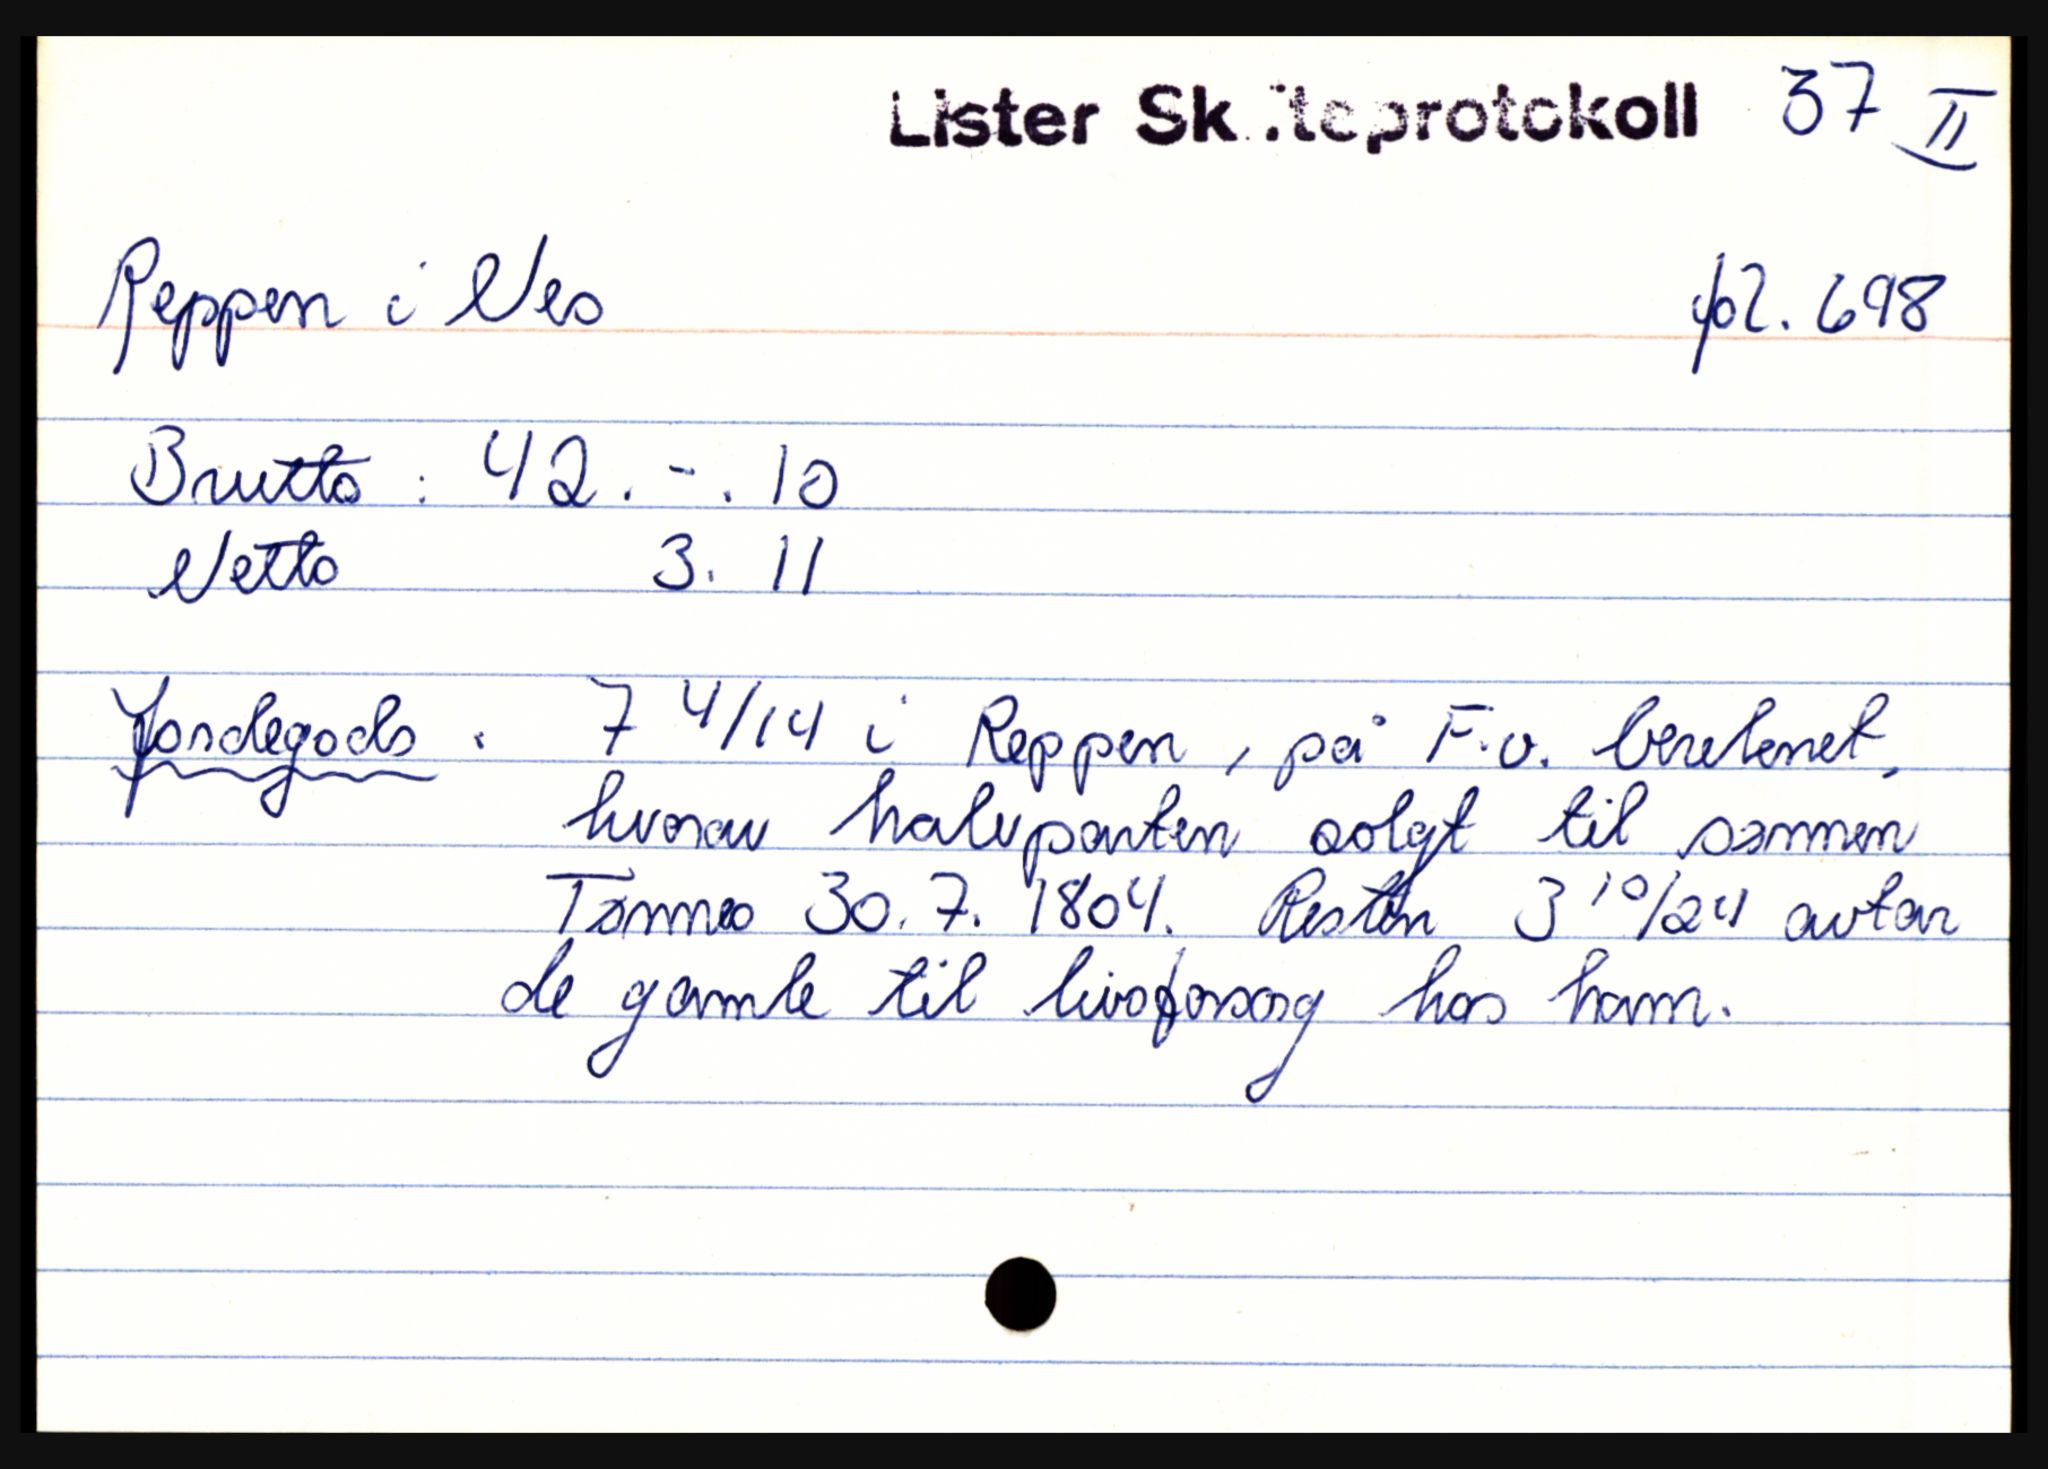 Lister Skifteprotokoll 37 II
Reppen i Nes fol. 698
Brutto : 42. - . 10
Netto 3. 11
Jordegods. 7 4/14 i Reppen, på F.v. beretenet,
hvorav halvparten solgt til sønnen
Tønnes 30.7. 1804. Resten 3 10/24 avtar
de gamle til livsforsorg hos ham.